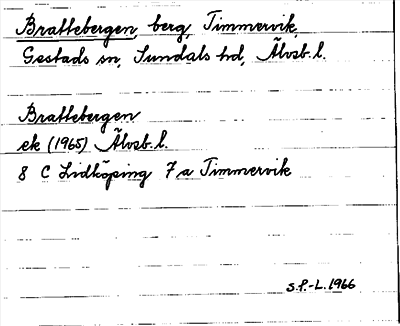 Brattebergen, berg, Timmervik,
Gestads sn, Sundals hd, Älvsb. l.
Brattebergen
ek (1965) Älvsb. l.
8 C Lidköping 7 a Timmervik
S.P.-L. 1966